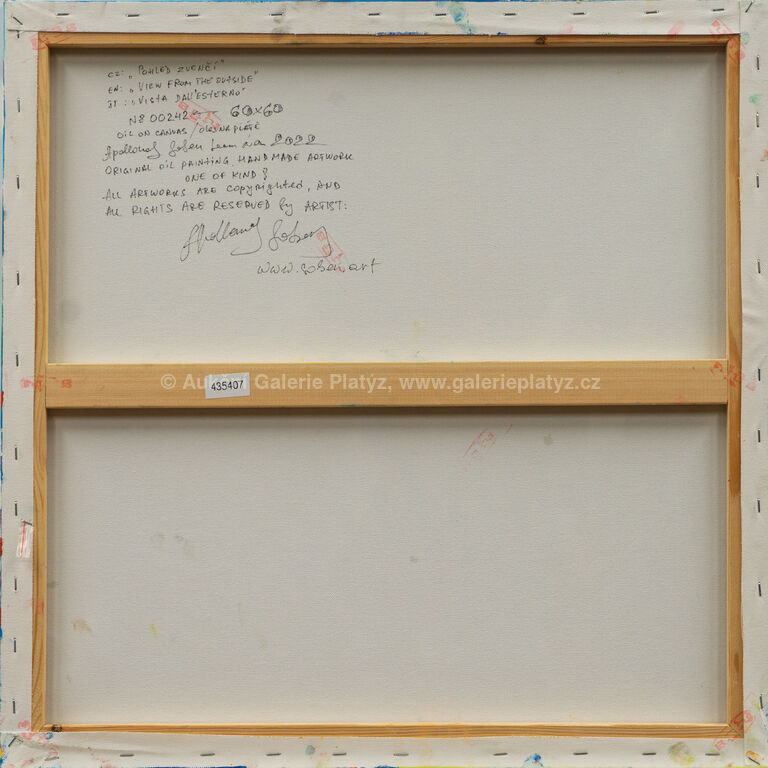 CZ: „POHLED ZVENČÍ"
EN: „VIEW FROM THE OUTSIDE"
IT: „VISTA DALL'ESTERNO"
N8 00242 60x60
OIL ON CANVAS / OLEJ NA PLÁTĚ
2022
ORIGINAL OIL PAINTING, HANDMADE ARTWORK
ONE OF KIND!
ALL ARTWORKS ARE copyrighted, AND
ALL RIGHTS ARE RESERVED by ARTIST:
www.soben.art
© Galerie Platýz, www.galerieplatyz.cz
435407